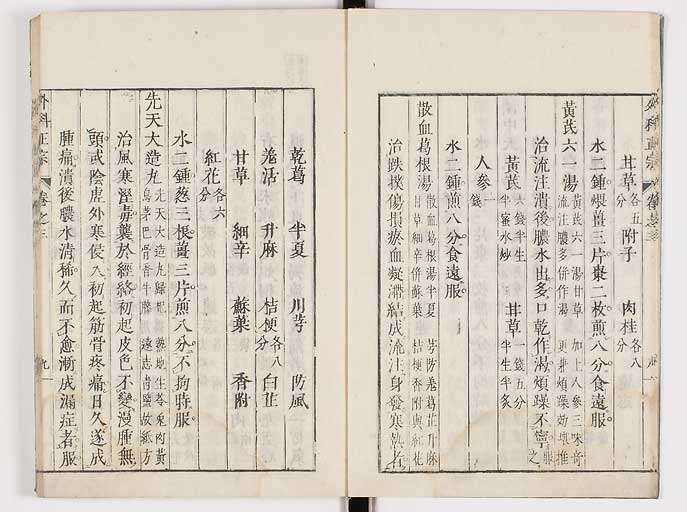 甘草各五分 附子 肉桂各八分
水二鍾煨薑三片棗二枚煎八分食遠服
黃芪六一湯 黃芪六一湯甘草 加上人參三味奇 流注膿多併作渴 更兼煩躁效堪推
治流注潰後膿水出多口乾作渴煩躁不寧服之
黃芪六錢半生半蜜水炒 甘草一錢五分半生半炙
人參一錢
水二鍾煎八分食遠服
散血葛根湯 散血葛根湯半夏 芎防羌葛芷升麻 甘草細辛併蘇葉 桔梗香附與紅花
治跌撲傷損瘀血凝滯結成流注身發寒熱者
乾葛 半夏 川芎 防風
羌活 升麻 桔梗各八分 白芷
甘草 細辛 蘇葉 香附
紅花各六分
水二鍾葱三根薑三片煎八分不拘時服
先天大造丸
治風寒溼毒襲於經絡初起皮色不變漫腫無
頭或陰虛外寒侵入初起筋骨疼痛日久遂成
腫痛潰後膿水清稀久而不愈漸成漏症者服
外科正宗 卷之三 九